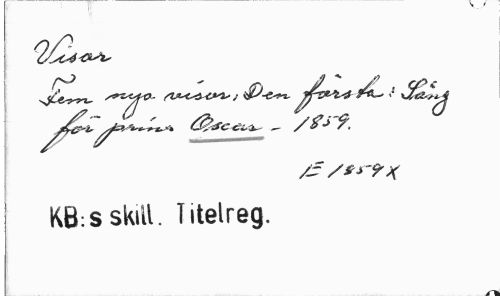 Visor
Fem nya visor; Den första: Sång
för prins Oscar - 1859.
E 1859 x
KB:s skill. Titelreg.